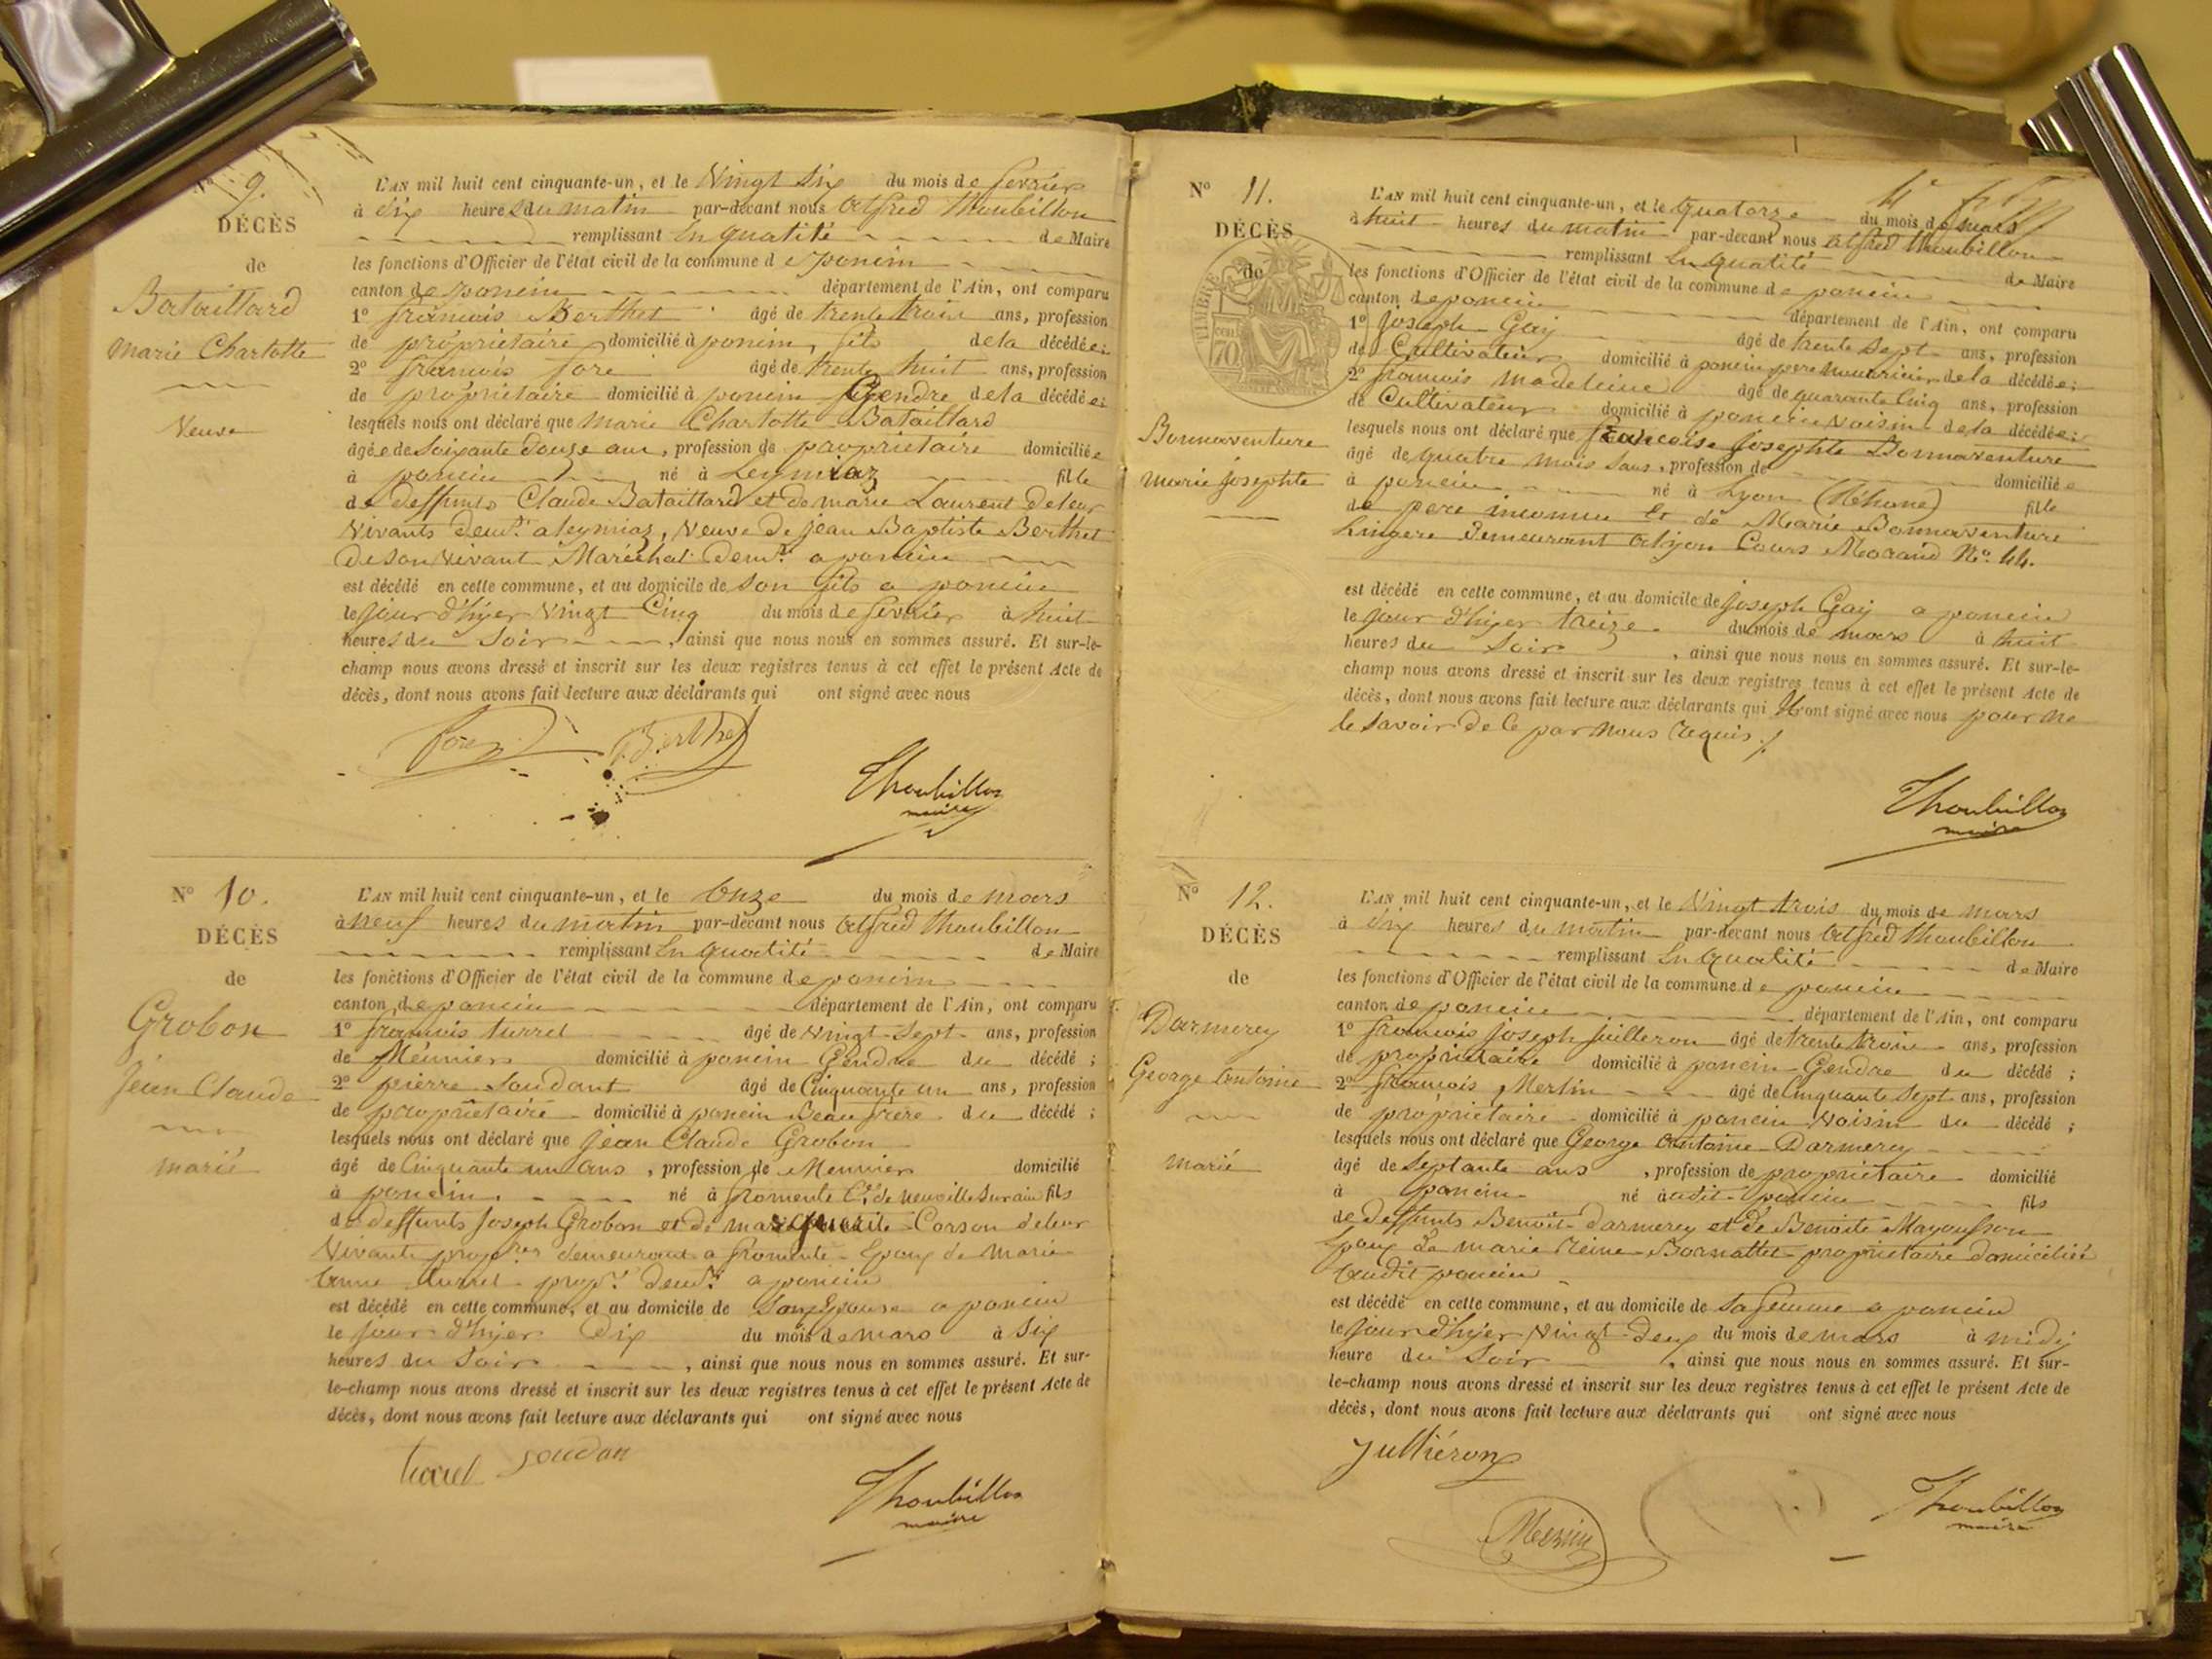 N° 9.
DÉCÈS
de
Bataillard
Marie Charlotte
Veuve
L'AN mil huit cent cinquante-un, et le Vingt Six du mois de fevrier
à dix heures du matin par-devant nous Alfred Thoubillon
remplissant En qualité de Maire
les fonctions d'Officier de l'état civil de la commune de poncin
canton de poncin département de l'Ain, ont comparu
1° françois Berthet âgé de trente trois ans, profession
de propriétaire domicilié à poncin, fils de la décédée;
2° françois fore âgé de trente huit ans, profession
de propriétaire domicilié à poncin Gendre de la décédée;
lesquels nous ont déclaré que Marie Charlotte Bataillard
âgée de Soixante douze ans, profession de propriétaire domiciliée
à poncin né à Leymiaz fille
de deffunts Claude Bataillard et de marie Laurent de leur
Vivants demt. a leymiaz, Veuve de jean Baptiste Berthet
De son Vivant Maréchal demt. a poncin
est décédé en cette commune, et au domicile de son fils a poncin
le jour d'hyer Vingt Cinq du mois de fevrier à huit
heures du Soir, ainsi que nous nous en sommes assuré. Et sur-le-
champ nous avons dressé et inscrit sur les deux registres tenus à cet effet le présent Acte de
décès, dont nous avons fait lecture aux déclarants qui ont signé avec nous
fore Berthet
Thoubillon
maire
N° 10.
DÉCÈS
de
Grobon
Jean Claude
marié
L'AN mil huit cent cinquante-un, et le Onze du mois de mars
à neuf heures du matin par-devant nous Alfred Thoubillon
remplissant En qualité de Maire
les fonctions d'Officier de l'état civil de la commune de poncin
canton de poncin département de l'Ain, ont comparu
1° françois turrel âgé de Vingt-Sept ans, profession
de Meunier domicilié à poncin Gendre du décédé;
2° pierre Soudant âgé de Cinquante un ans, profession
de propriétaire domicilié à poncin Beau frère du décédé;
lesquels nous ont déclaré que jean Claude Grobon
âgé de Cinquante un ans, profession de Meunier domicilié
à poncin. né à fromente Cne de neuville sur ain fils
de deffunts Joseph Grobon et de marguerite Corson de leur
Vivants demeurant a fromente Epoux de Marie
turrel propre demt. a poncin
est décédé en cette commune, et au domicile de Son Epouse a poncin
le jour d'hyer Dix du mois de mars à Six
heures du Soir, ainsi que nous nous en sommes assuré. Et sur-
le-champ nous avons dressé et inscrit sur les deux registres tenus à cet effet le présent Acte de
décès, dont nous avons fait lecture aux déclarants qui ont signé avec nous
turrel Soudan
Thoubillon
maire
N° 11.
DÉCÈS
de
TIMBRE
70
Bonnaventure
Marie josephte
L'AN mil huit cent cinquante-un, et le Quatorze du mois de mars
à huit heures du matin par-devant nous Alfred Thoubillon
remplissant En qualité de Maire
les fonctions d'Officier de l'état civil de la commune de poncin
canton de poncin département de l'Ain, ont comparu
1° Joseph Gay âgé de trente Sept ans, profession
de Cultivateur domicilié à poncin pere nourricier de la décédée;
2° françois Madeleine âgé de quarante Cinq ans, profession
de Cultivateur domicilié à poncin Voisin de la décédée;
lesquels nous ont déclaré que françoise josephte Bonnaventure
âgé de quatre mois Sans, profession de domiciliée
à poncin né à Lyon (Rhone) fille
de pere inconnu Et de Marie Bonnaventure
Lingere Demeurant a Lyon Cours Morand No. 44.
est décédé en cette commune, et au domicile de joseph Gay a poncin
le jour d'hyer treize du mois de mars à huit
heures du Soir, ainsi que nous nous en sommes assuré. Et sur-le-
champ nous avons dressé et inscrit sur les deux registres tenus à cet effet le présent Acte de
décès, dont nous avons fait lecture aux déclarants qui N'ont signé avec nous pour ne
le Savoir de Ce par Nous requis
Thoubillon
maire
N° 12.
DÉCÈS
de
Darmerey
George Antoine
Marié
L'AN mil huit cent cinquante-un, et le Vingt trois du mois de mars
à dix heures du matin par-devant nous Alfred Thoubillon
remplissant En qualité de Maire
les fonctions d'Officier de l'état civil de la commune de poncin
canton de poncin département de l'Ain, ont comparu
1° françois joseph juilleron âgé de trente trois ans, profession
de propriétaire domicilié à poncin Gendre du décédé;
2° françois Merlin âgé de Cinquante Sept ans, profession
de propriétaire domicilié à poncin Voisin du décédé;
lesquels nous ont déclaré que George Antoine Darmerey
âgé de Septante ans, profession de propriétaire domicilié
à poncin né audit poncin fils
de deffunts Benoit darmerey et de Benoite
Epoux de marie Reine propriétaire domiciliée
audit poncin
est décédé en cette commune, et au domicile de Sa femme a poncin
le jour d'hyer Vingt Deux du mois de mars à midy
heure du Soir, ainsi que nous nous en sommes assuré. Et sur-
le-champ nous avons dressé et inscrit sur les deux registres tenus à cet effet le présent Acte de
décès, dont nous avons fait lecture aux déclarants qui ont signé avec nous
Julliéron
Thoubillon
maire